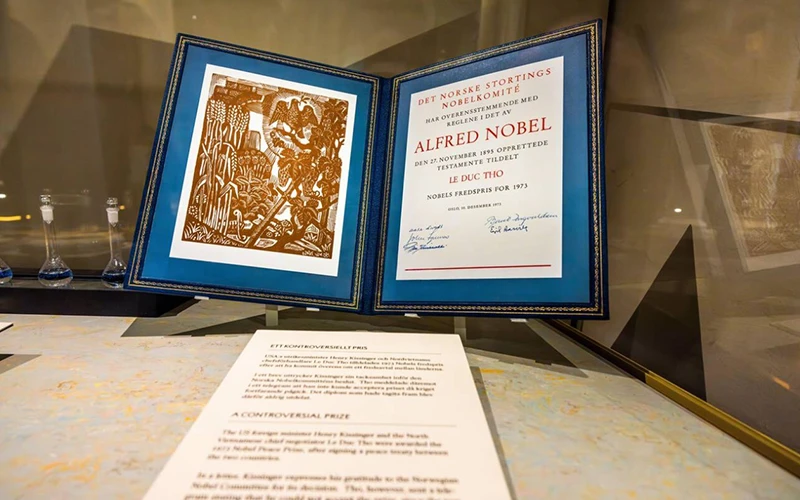 DET NORSKE STORTINGS
NOBELKOMITÉ
HAR OVERENSSTEMMENDE MED
REGLENE I DET AV
ALFRED NOBEL
DEN 27. NOVEMBER 1895 OPPRETTEDE
TESTAMENTE TILDELT
LE DUC THO
NOBELS FREDSPRIS FOR 1973
OSLO, 10. DESEMBER 1973
ETT KONTROVERSIELLT PRIS
USA:s utrikesminister Henry Kissinger och Nordvietnams
chefsförhandlare Le Duc Tho tilldelades 1973 Nobels fredspris
efter att ha kommit överens om ett fredsavtal mellan länderna.
I ett brev uttrycker Kissinger sin tacksamhet inför den
Norska Nobelkommitténs beslut. Tho meddelade däremot
i ett telegram att han inte kunde acceptera priset då kriget
fortfarande pågick. Det diplom som hade tagits fram blev
därför aldrig utdelat.
A CONTROVERSIAL PRIZE
The US foreign minister Henry Kissinger and the North
Vietnamese chief negotiator Le Duc Tho were awarded the
1973 Nobel Peace Prize, after signing a peace treaty between
the two countries.
In a letter, Kissinger expresses his gratitude to the Norwegian
Nobel Committee for its decision. Tho, however, sent a tele-
gram stating that he could not accept the prize